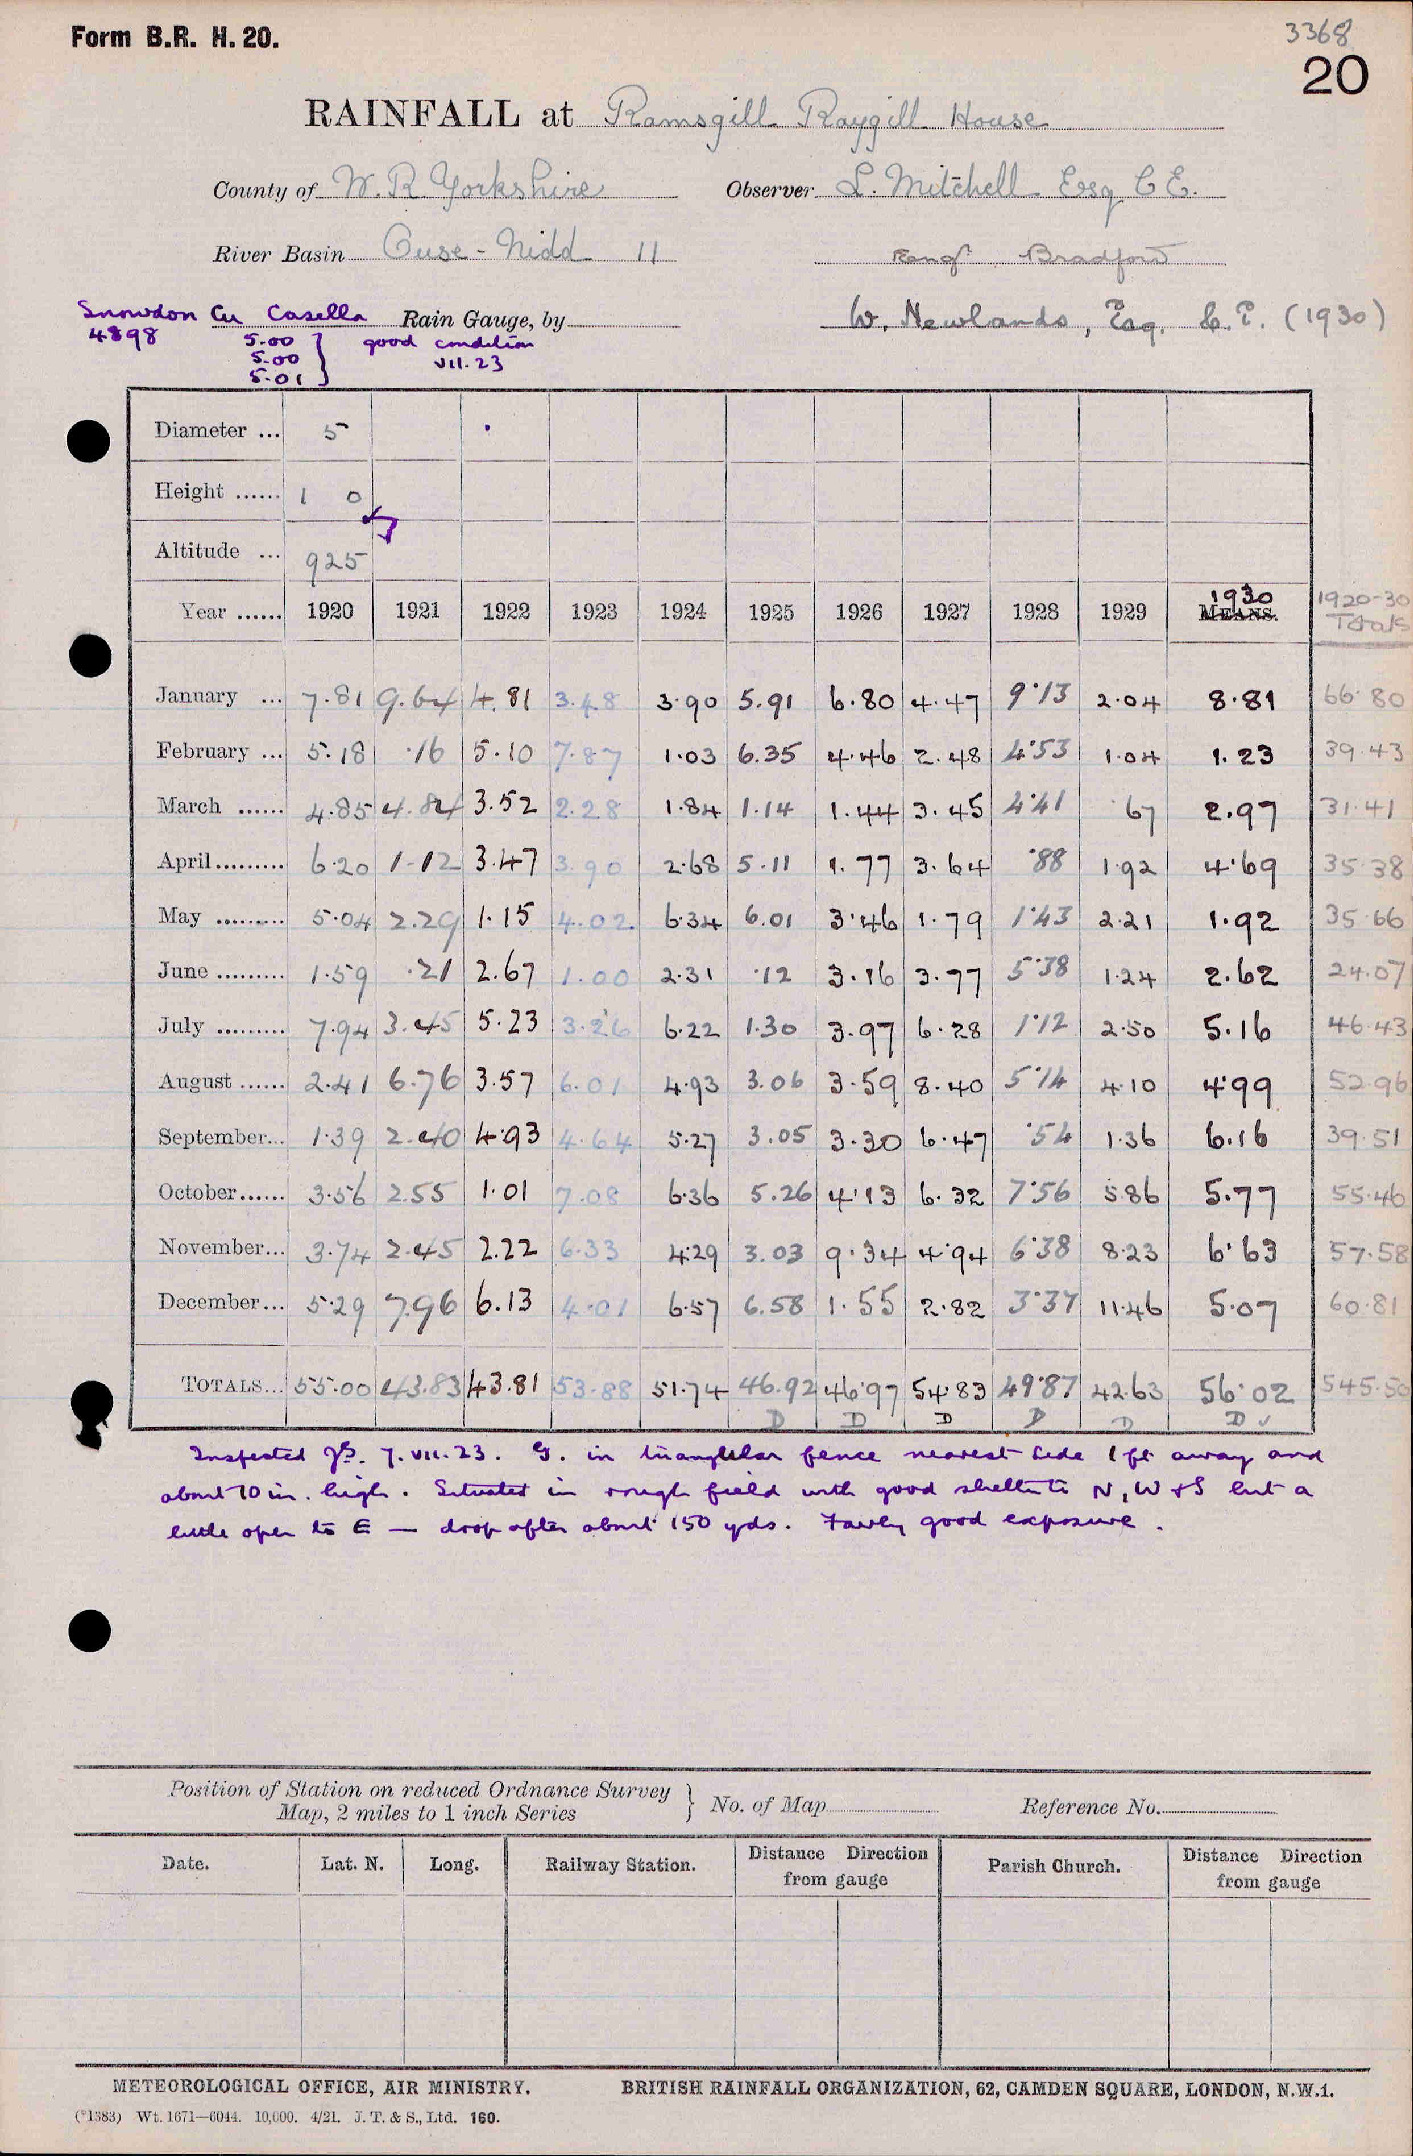 Form B.R. H. 20.
3368
20
RAINFALL at Ramsgill Raygill House
County of W. R Yorkshire Observer L. Mitchell Esq C E.
River Basin Ouse - Nidd 11 Bradford
Snowdon Cu Casella Rain Gauge, by W. Newlands, Esq. C. E. (1930)
4898 5.00 } good condition
5.00 VII.23
5.01
Diameter ... 5
Height ...... 1 0
Altitude ... 925
Year ...... 1920 1921 1922 1923 1924 1925 1926 1927 1928 1929 1930 MEANS. 1920-30 Totals
January ... 7.81 9.64 4.81 3.48 3.90 5.91 6.80 4.47 9.13 2.04 8.81 66.80
February ... 5.18 .16 5.10 7.87 1.03 6.35 4.46 2.48 4.53 1.04 1.23 39.43
March ...... 4.85 4.84 3.52 2.28 1.84 1.14 1.44 3.45 4.41 .67 2.97 31.41
April ......... 6.20 1.12 3.47 3.90 2.68 5.11 1.77 3.64 .88 1.92 4.69 35.38
May ......... 5.04 2.29 1.15 4.02 6.34 6.01 3.46 1.79 1.43 2.21 1.92 35.66
June ......... 1.59 .21 2.67 1.00 2.31 .12 3.16 3.77 5.38 1.24 2.62 24.07
July ......... 7.94 3.45 5.23 3.26 6.22 1.30 3.97 6.28 1.12 2.50 5.16 46.43
August ...... 2.41 6.76 3.57 6.01 4.93 3.06 3.59 8.40 5.14 4.10 4.99 52.96
September... 1.39 2.40 4.93 4.64 5.27 3.05 3.30 6.47 .54 1.36 6.16 39.51
October...... 3.56 2.55 1.01 7.08 6.36 5.26 4.13 6.32 7.56 5.86 5.77 55.46
November... 3.74 2.45 2.22 6.33 4.29 3.03 9.34 4.94 6.38 8.23 6.63 57.58
December... 5.29 7.96 6.13 4.01 6.57 6.58 1.55 2.82 3.37 11.46 5.07 60.81
TOTALS... 55.00 43.83 43.81 53.88 51.74 46.92 46.97 54.83 49.87 42.63 56.02 545.50
D D D D D D ✓
Inspected 7.VII.23. G. in triangular fence nearest side 1 ft away and
about 10 in. high. Situated in rough field with good shelter to N, W & S but a
little open to E — drop after about 150 yds. Fairly good exposure.
Position of Station on reduced Ordnance Survey } No. of Map Reference No.
Map, 2 miles to 1 inch Series
Date. Lat. N. Long. Railway Station. Distance Direction from gauge Parish Church. Distance Direction from gauge
METEOROLOGICAL OFFICE, AIR MINISTRY. BRITISH RAINFALL ORGANIZATION, 62, CAMDEN SQUARE, LONDON, N.W.1.
(*1383) Wt. 1671—6044. 10,000. 4/21. J. T. & S., Ltd. 160.